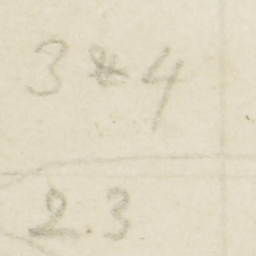 3 & 4
2.3